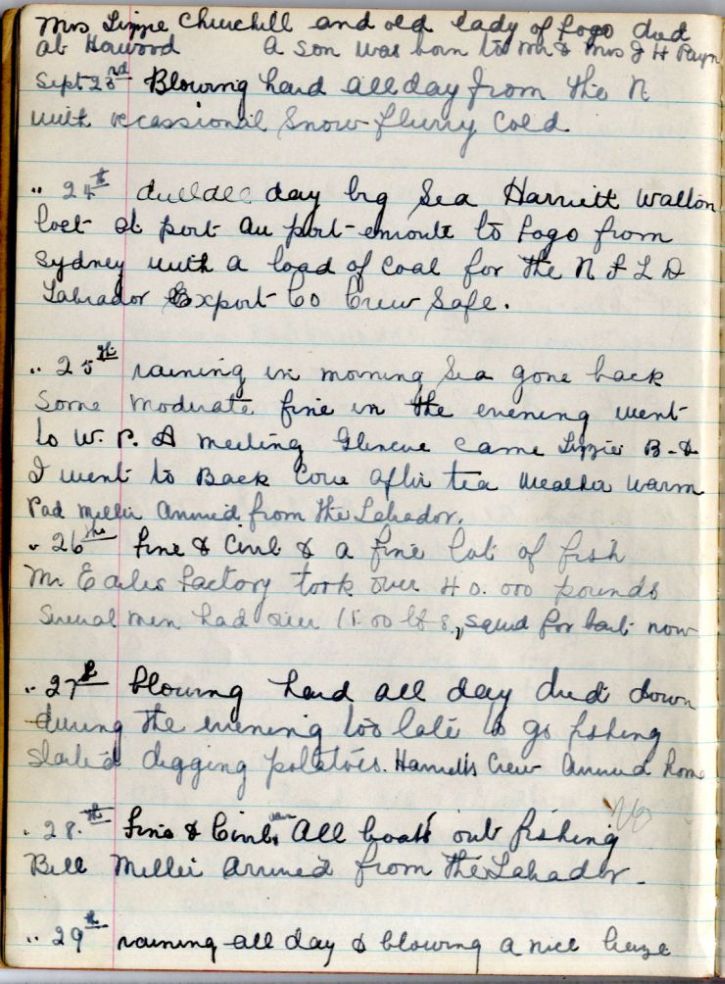 Mrs Lizzie Churchill and old lady of Fogo died
at Horwood A son was born to Mr & Mrs J H Payn
Sept 23rd Blowing hard all day from the N
with occassional Snow flurry Cold
" 24th day big Sea Harriett Walton
lost at port au port enroute to Fogo from
Sydney with a load of Coal for the N F L D
Labrador Export Co Crew Safe.
" 25th raining in morning Sea gone back
Some moderate fine in the evening went
to W. P. A meeting Glencoe came Lizzie B. &
I went to Back Cove after tea Weather warm
Pad Miller Arrived from the Labador.
" 26th Fine & Civil & a fine lot of fish
Mr Earles Factory took over 40.000 pounds
Several men had over 1500 lbs, squid for bait now
" 27th blowing hard all day died down
during the evening too late to go fishing
started digging potatoes. Harrietts Crew Arrived home
" 28.th Fine & Civil All boats out fishing
Bill Miller arrived from the Labador.
" 29th raining all day & blowing a nice breeze